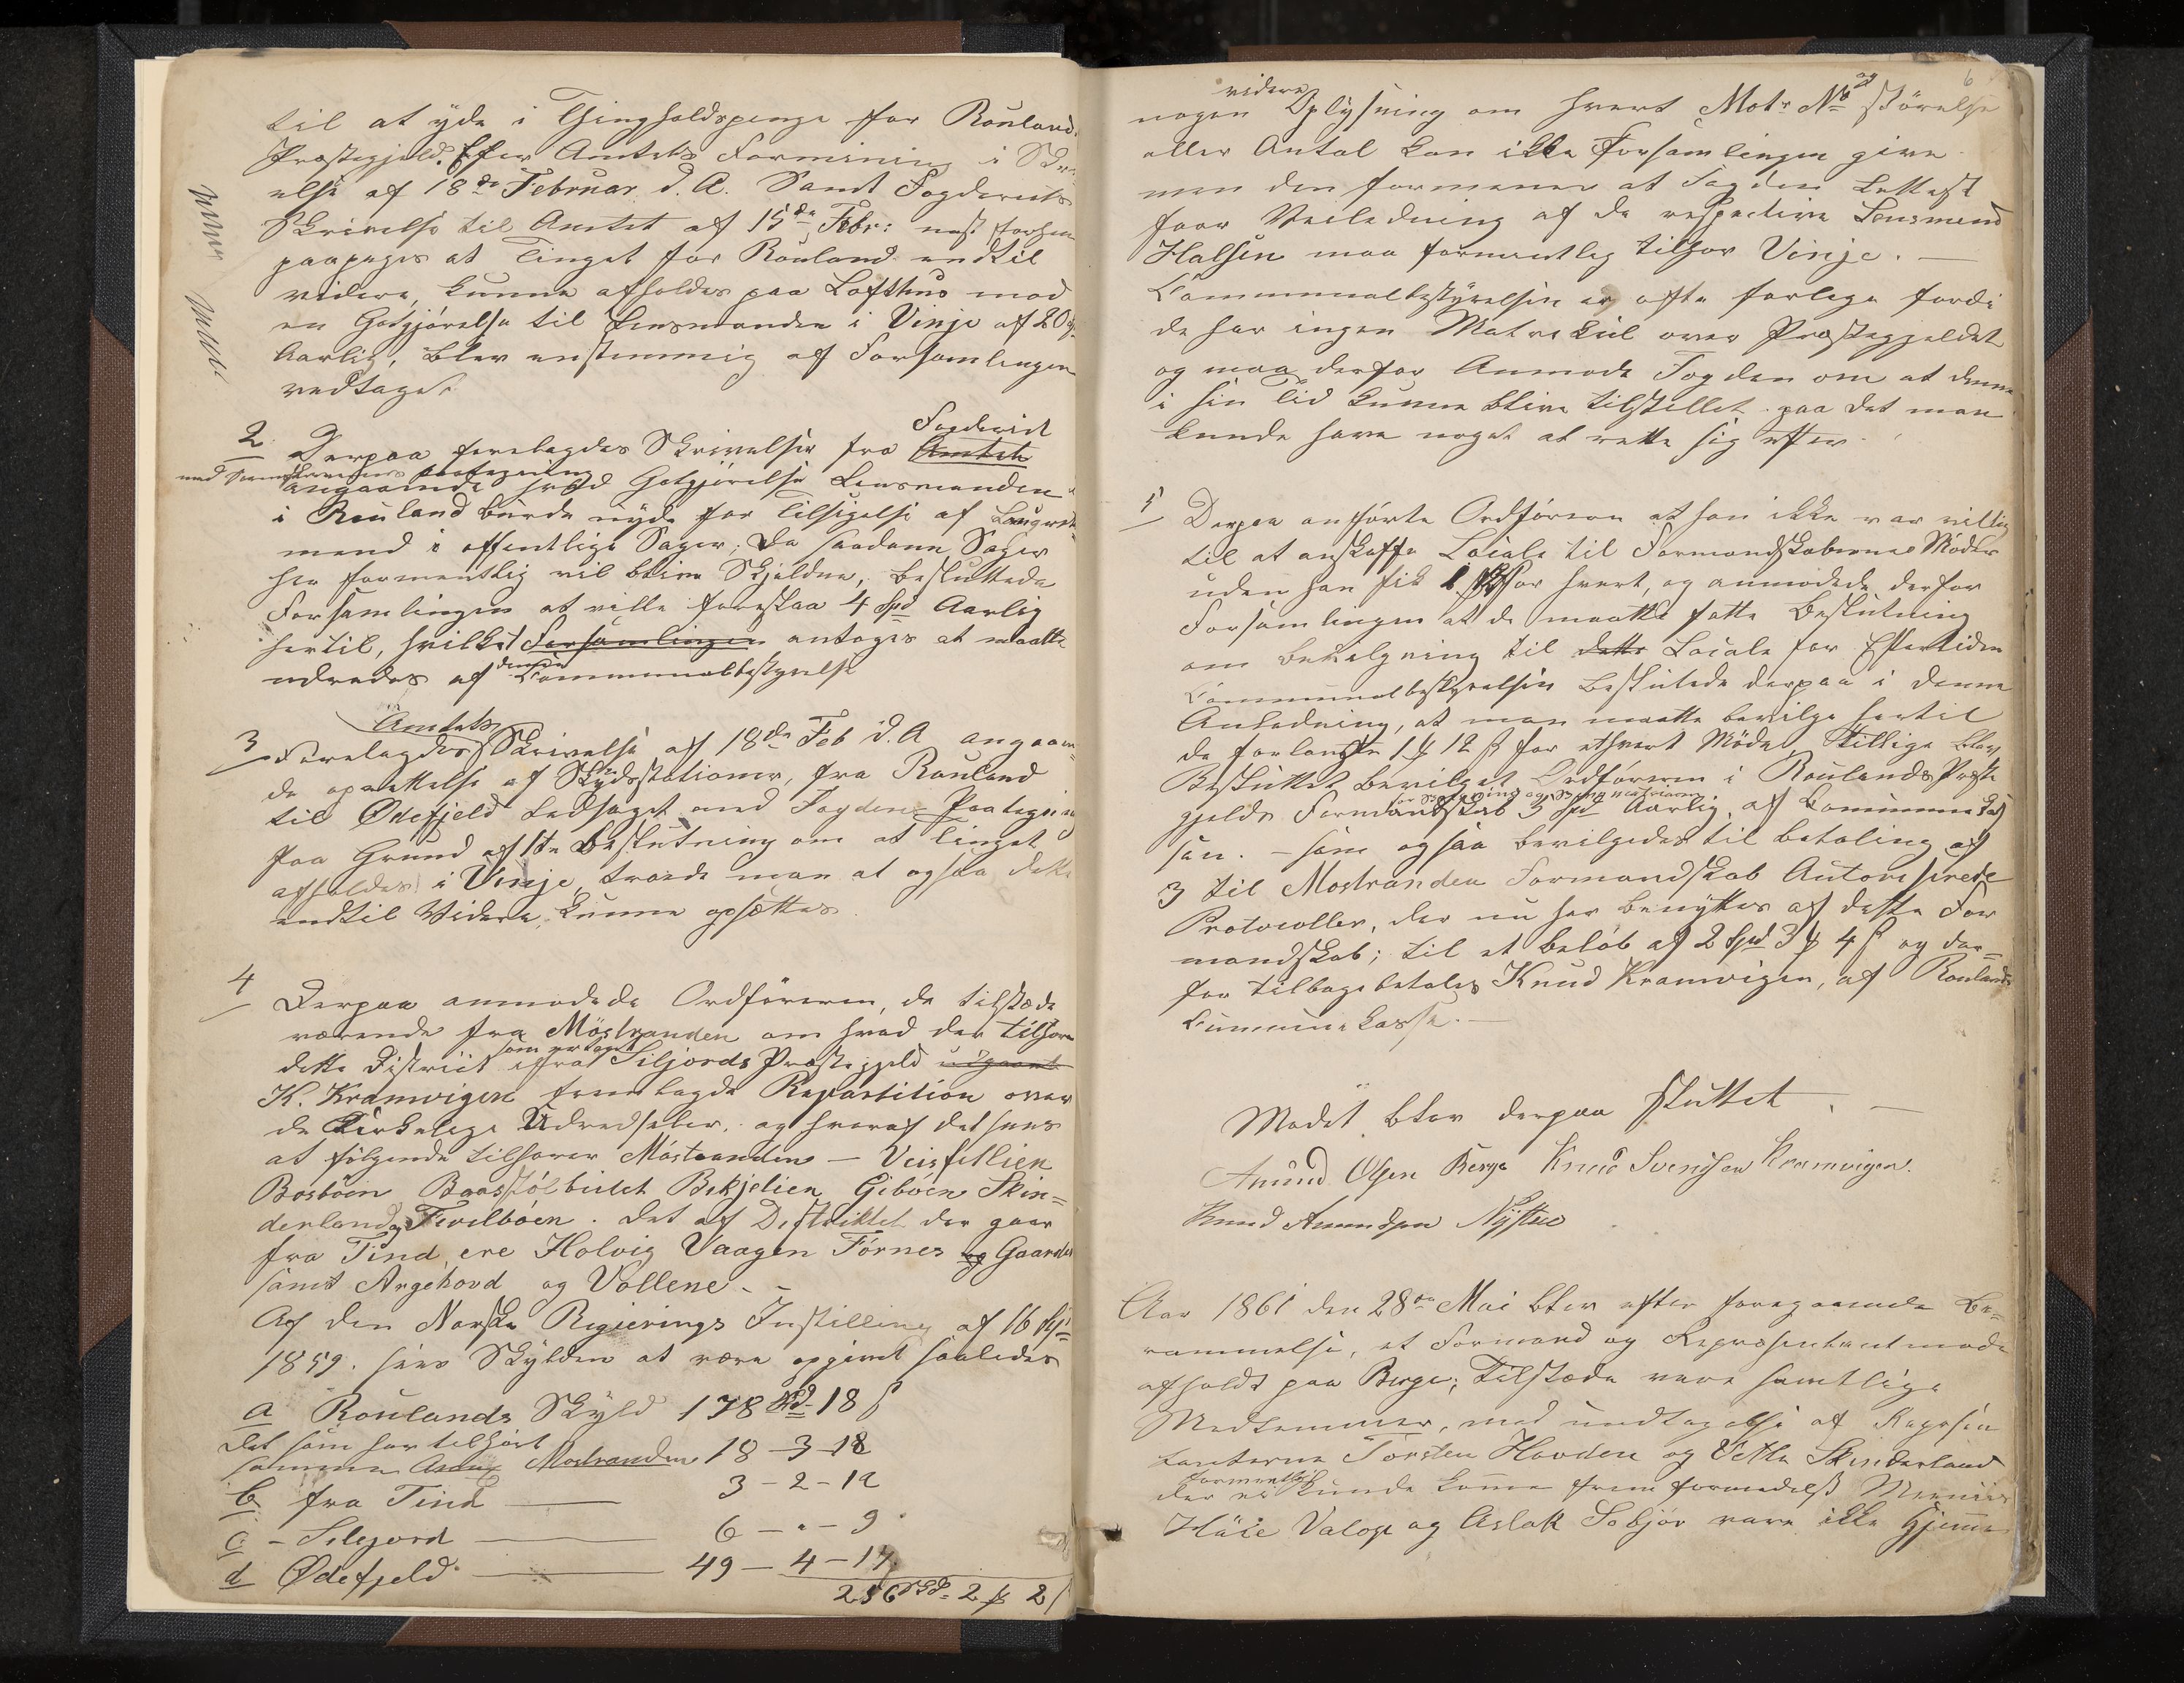 til at yde i Thingholdspenge for Rouland
Præstegjeld. Efter Amtets Formening i Skriv-
else af 18de Februar d. A. Samt Fogderiets
Skrivelse til Amtet af 15de Febr: næst forhen
paapeges at Tinget for Rouland indtil
videre, kunne afholdes paa Lofthus mod
en Godtgjørelse til Lensmanden i Vinje af 20
Aarlig, blev enstemmig af Forsamlingen
vedtaget.
2 Derpaa forelagdes Skrivelse fra Amtet Fogderiet
med paategning
angaaende hvad Godtgjørelse Lensmanden
i Rouland burde nyde for Tilsigelse af Laugrets-
mænd i offentlige Sager; Da saadanne Sager
her formentlig vil blive Skjeldne, besluttede
Forsamlingen at ville foreslaa 4 Spd Aarlig
hertil, hvilket Forsamlingen antoges at maatte
udredes af denne Communalbestyrelse
Amtets
3 Forelagdes Skrivelse af 18de Feb d. A angaaen-
de oprettelse af Skydsstationer, fra Rouland
til Ødefjeld ledsaget med Fogdens Paategning
Paa Grund af 1te Beslutning om at Tinget
afholdes i Vinje, troede man at ogsaa dette
indtil Videre, kunne opsættes.
4 Derpaa anmodede Ordføreren, de tilstede
værende fra Møstranden om hvad der tilhører
dette District som er taget ifra Siljords Præstegjeld udgaaet
K. Kramvigen fremlagde Repartition over
de Kirkelige Udredseler, og hvoraf det sees
at følgende tilhører Møstranden — Veisfetlien
Bosbøen Baasstølbutet Bekjelien Gibøen Skin-
derland og Fevilbøen. Det af Distriktet der gaar
fra Tind, ere Holvig Vaagen Førnes og Gaarder
samt Argehovd og Vollene. -
Af den Norske Regjerings Instilling af 16
1859. sees Skylden at være opgivet saaledes
a Roulands Skyld 178 Spd - 18 ß
Det som har tilhørt
sammen Mostranden 18 - 3 - 18
b fra Tind — 3 - 2 - 12
c - Silejord — 6 - " - 9
d Ødefjeld — 49 - 4 - 17
256 Spd = 2 ₰ 2 ß
6
nogen videre Oplysning om hvert Matr No og Størrelse
eller Antal kan ikke Forsamlingen give
men den formener at Fogden Lettest
faar Veiledning af de respective Lensmænd
Halsen maa formentlig tilhør Vinje. —
Communalbestyrelsen er ofte forlegen fordi
de har ingen Matrekul over Præstegjeldet
og maa derfor Anmode Fogden om at denne
i sin Tid kunne blive tilstillet paa det man
kunde have noget at rette sig efter.
5 Derpaa anførte Ordføreren at han ikke var villig
til at anskaffe Locale til Formandskabernes Møder
uden han fik 1 for hvert, og anmodede derfor
Forsamlingen at de maatte fatte Beslutning
om bevilgning til dette Locale for Eftertiden
Communalbestyrelsen besluttede derpaa i denne
Anledning, at man maatte bevilge hertil
de forlangte 1 ₰ 12 ß for ethvert Møde, tillige blev
Besluttet bevilget Ordføreren i Roulands Præste
gjelds Formandskab 3 Spd Aarlig, af Communekas
sen. — som ogsaa bevilgedes til betaling af
3 til Mostranden Formandskab Autoriserede
Protocoller, der nu her benyttes af dette For
mandskab; til et beløb af 2 Spd 3 ₰ 4 ß og der-
for tilbagebetales Knud Kramvigen, af Roulands
Communekasse. —
Mødet blev derpaa sluttet. —
Amund Olsen Berge Knud Svendsen Kramvigen.
Knud Amundsen Nystue
Aar 1861 den 28de Mai blev efter foregaaende Be-
rammelse, et Formand og Repræsentantmøde
afholdt paa Berge; Tilstede vare samtlige
Medlemmer, med undtagelse af Repræsen
tanterne Torsten Hovden og Vetle Skinderland
der formentlig ei kunde komme frem formedelst
Halie Valop og Aslak Sobjør vare ikke hjemme